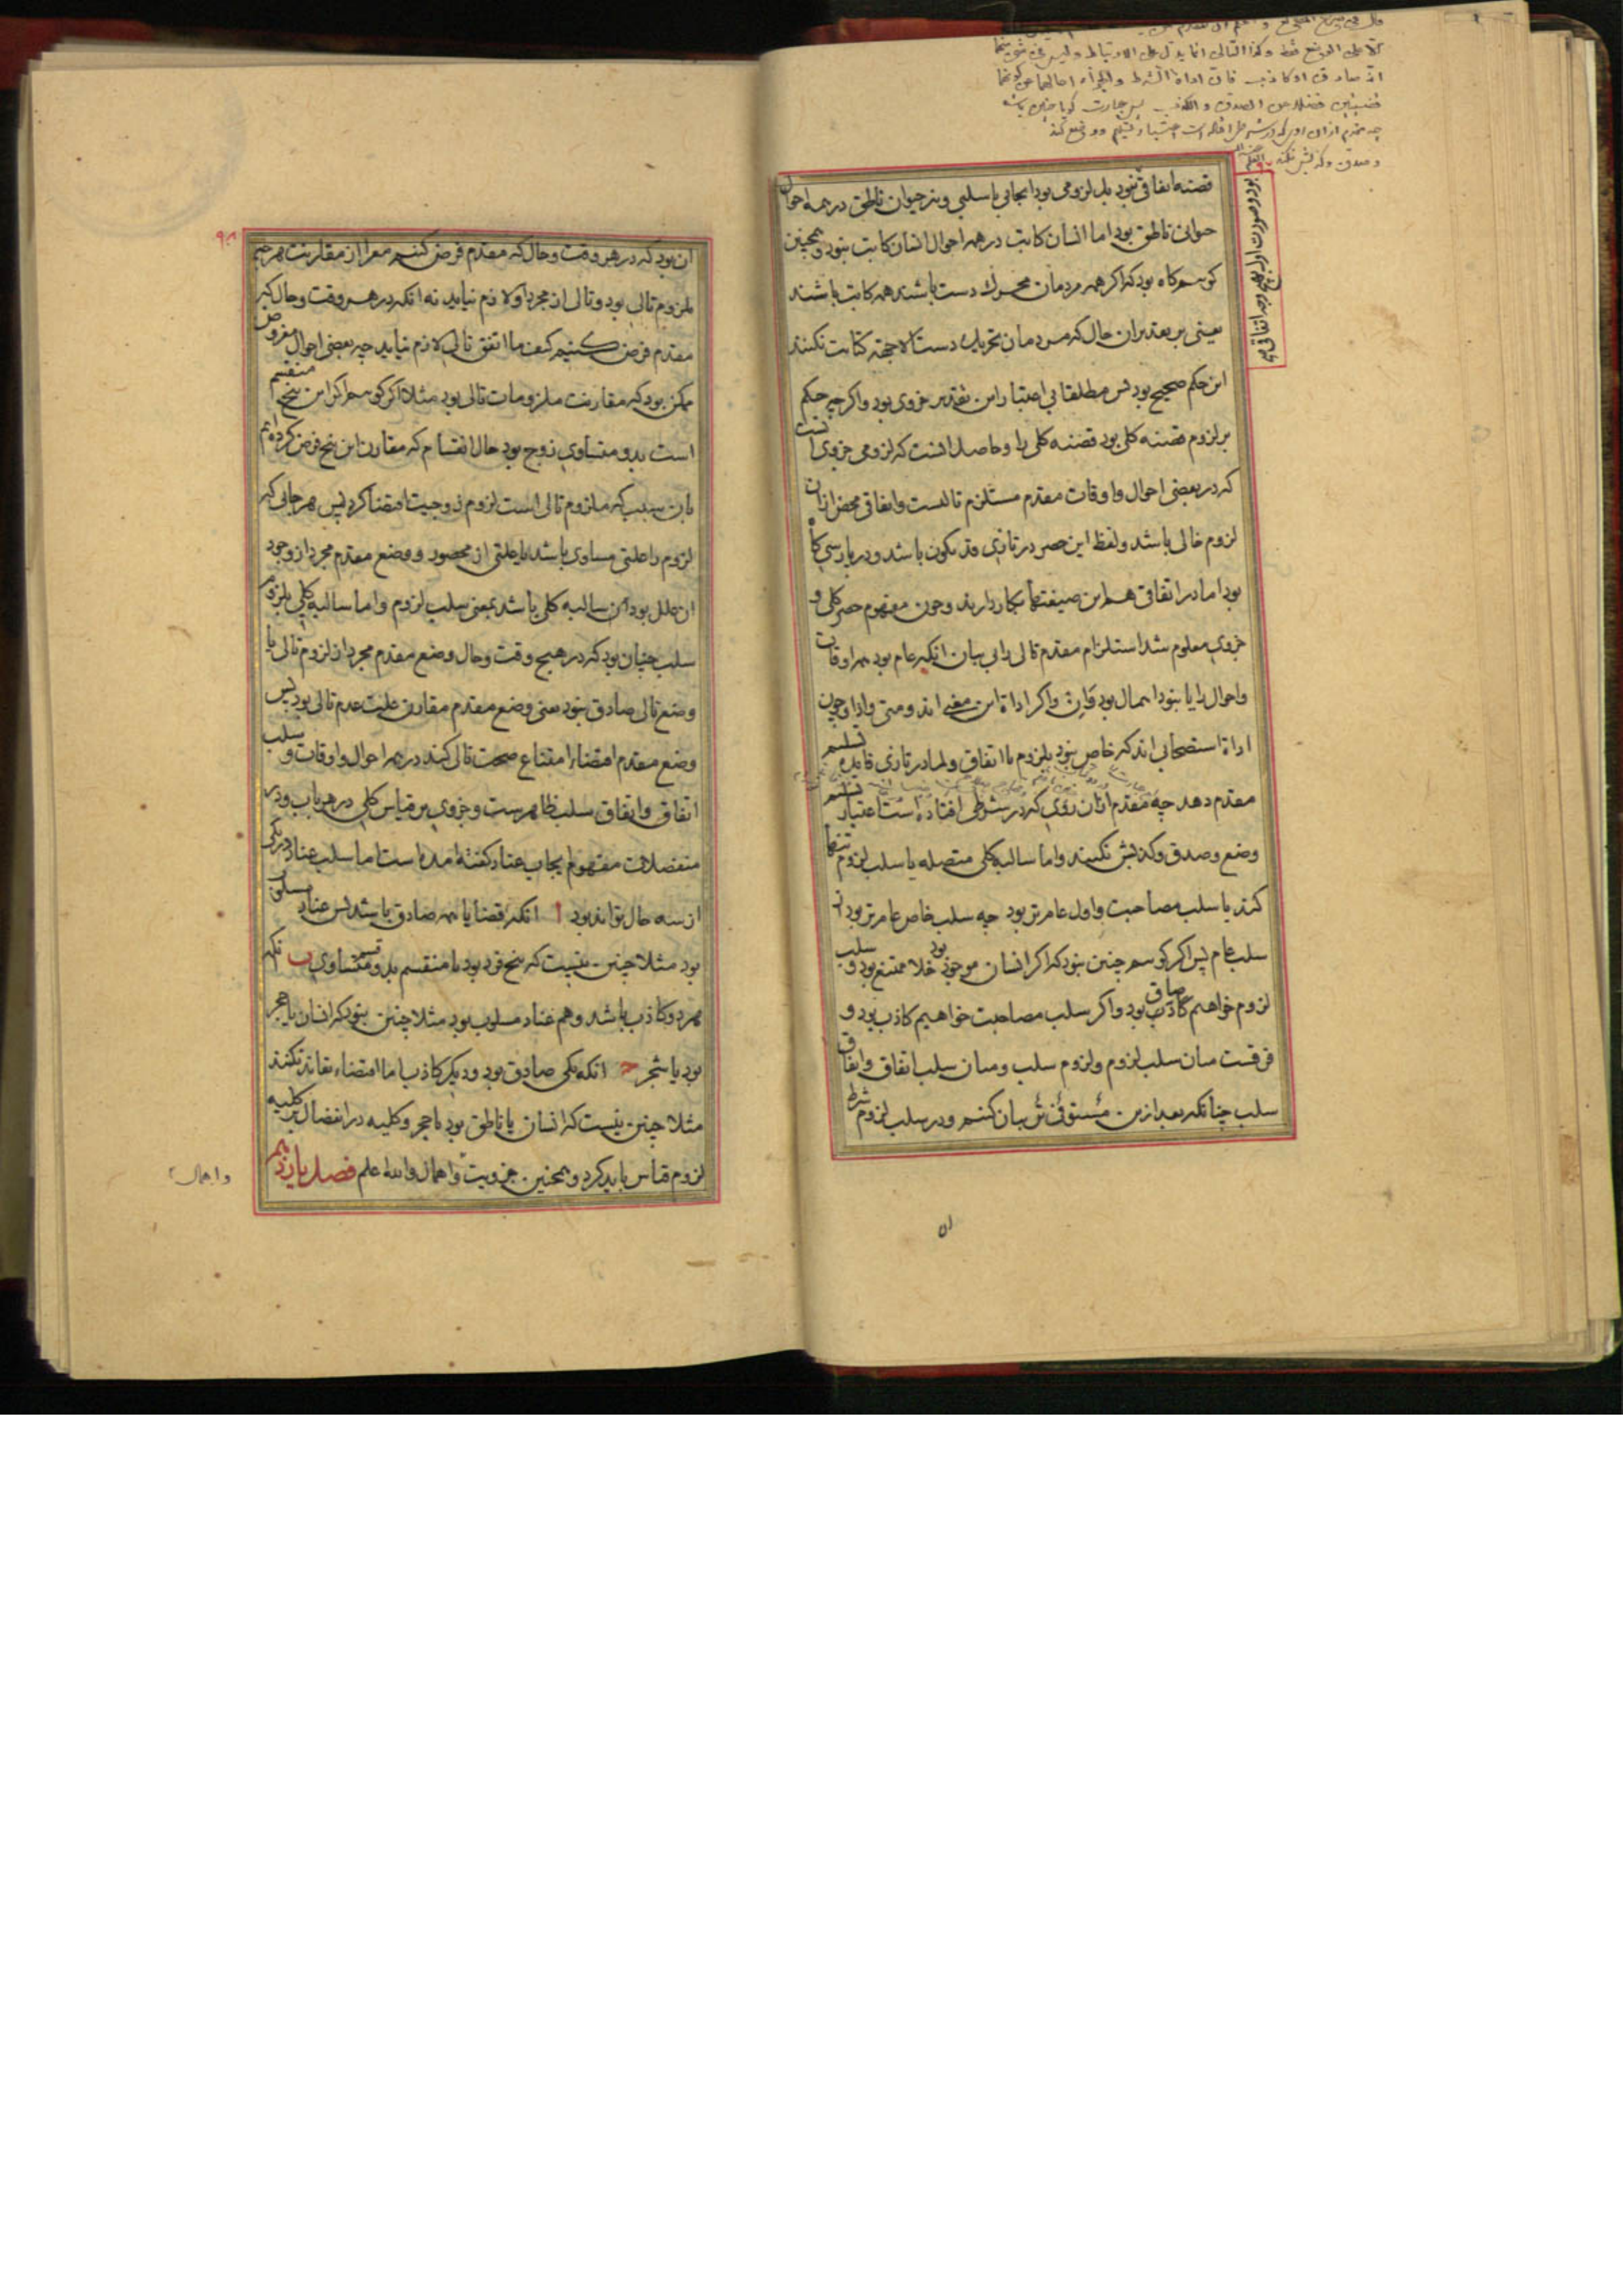 قضیه اتفاقی نبود بل لزومی بود ایجابی یا سلبی و نیز حیوان ناطق در همه احوال
حیوانی ناطق بود اما انسان کاتب در همه احوال انسان کاتب نبود و همچنین
کوییم کاه بود که اکر همه مردمان محرک دست باشند همه کاتب باشند
یعنی بر تقدیر ان حال که مردمان تحریک دست الا جهة کتابت نکنند
این حکم صحیح بود پس مطلقا بی اعتبار این تقدیر جزوی بود و اکر چه حکم
بر لزوم قضیه کلی بود قضیه کلی را و حاصل انست که لزومی جزوی انست
که در بعضی احوال و اوقات مقدم مستلزم تالیست و اتفاقی محض ازان
لزوم خالی باشد و لفظ این حصر در تازی قد یکون باشد و در پارسی کاه
بود اما در اتفاقی هم این صیغتها بکار دارند و چون مفهوم حصر کلی و
جزوی معلوم شد استلزام مقدم تالی را بی بیان انکه عام بود همه اوقات
و احوال را یا نبود اهمال بود و ان و اکر اداة این معنی اند و متی و اذا و چون
اداة استصحابی اند که خاص نبود بلزوم یا اتفاق و لما در تازی فایده تسلیم
مقدم دهد چه مقدم ازان روی که در شرطی افتاده است اعتبار تسلیم
وضع و صدق و کذبش نکنند و اما سالبه کلی متصله یا سلب لزوم تنها
کند یا سلب مصاحبت و اول عام تر بود چه سلب خاص عام تر بود از
سلب عام پس اکر کوییم چنین نبود که اکر انسان موجود بود خلا ممتنع بود و سلب
لزوم خواهیم صادق بود و اکر سلب مصاحبت خواهیم کاذب بود و
فرقست میان سلب لزوم و لزوم سلب و میان سلب اتفاق و اتفاق
سلب چنانکه بعد ازین مستوفی تر بیان کنیم و در سلب لزوم شرط
۵۱
۹۸
ان بود که در هر وقت و حال که مقدم فرض کنیم معرا از مقارنت هر چه
ملزوم تالی بود و تالی ان مجرد را لازم نیاید نه انکه در هر وقت و حال که
مقدم فرض کنیم کیف ما اتفق تالی لازم نیاید چه بعضی احوال مفروض
ممکن بود که مقارنت ملزومات تالی بود مثلا اکر کوییم اکر این پنج منقسم
است بدو متساوی زوج بود حال انقسام که مقارن این پنج فرض کرده ایم
بان سبب که ملزوم تالی است لزوم زوجیت اقتضا کرد پس هر جایی که
لزوم را علتی مساوی باشد یا علتی ان محصور و وضع مقدم مجرد از وجود
ان علل بود ان سالبه کلی باشد بمعنی سلب لزوم و اما سالبه کلی بلزوم
سلب چنان بود که در هیچ وقت و حال وضع مقدم مجرد از لزوم تالی با
وضع تالی صادق نبود یعنی وضع مقدم مقارن علیت عدم تالی بود پس
وضع مقدم اقتضاء امتناع صحت تالی کند در همه احوال و اوقات و سلب
اتفاق و اتفاق سلب ظاهرست و جزوی بر قیاس کلی در هر باب و در
منفصلات مفهوم ایجاب عناد کفته امده است اما سلب عناد در یکی
از سه حال تواند بود ا انکه قضایا همه صادق باشد پس عناد مسلوب
بود مثلا چنین نیست که پنج فرد بود یا منقسم بدو قسم متساوی ب انکه
هر دو کاذب باشد و هم عناد مسلوب بود مثلا چنین نبود که انسان یا حجر
بود یا شجر ج انکه یکی صادق بود و دیکر کاذب اما اقتضاء تعاند نکنند
مثلا چنین نیست که انسان یا ناطق بود یا حجر و کلیه در انفصال بر کلیه
لزوم قیاس باید کرد و همچنین جزویت و اهمال والله اعلم فصل یازدهم
و اهمال